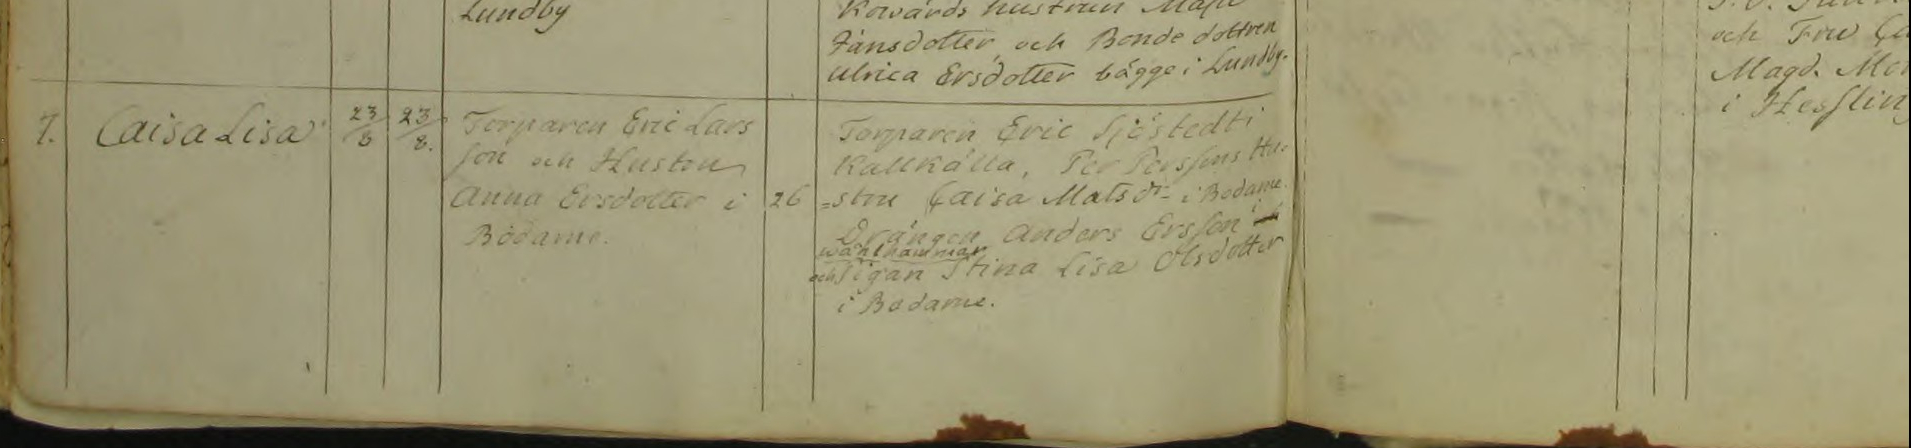 Lundby
Kowards hustrun
Jansdotter, och Bonde dottren
Ulrica Ersdotter bägge i Lundby.
7. Caisa Lisa 23/8 23/8.
Torparen Eric Lars
son och Hustrun
Anna Ersdotter i 26
Bodarne.
Torparen Eric Sjöstedt i
Kallkälla, Per Perssons Hu-
=stru Caisa Matsdr i Bodarne.
Drängen Anders Ersson i
Wahlhammar
och Pigan Stina Lisa Olsdotter
i Bodarne.
och Fru
Magd.
i Hessling